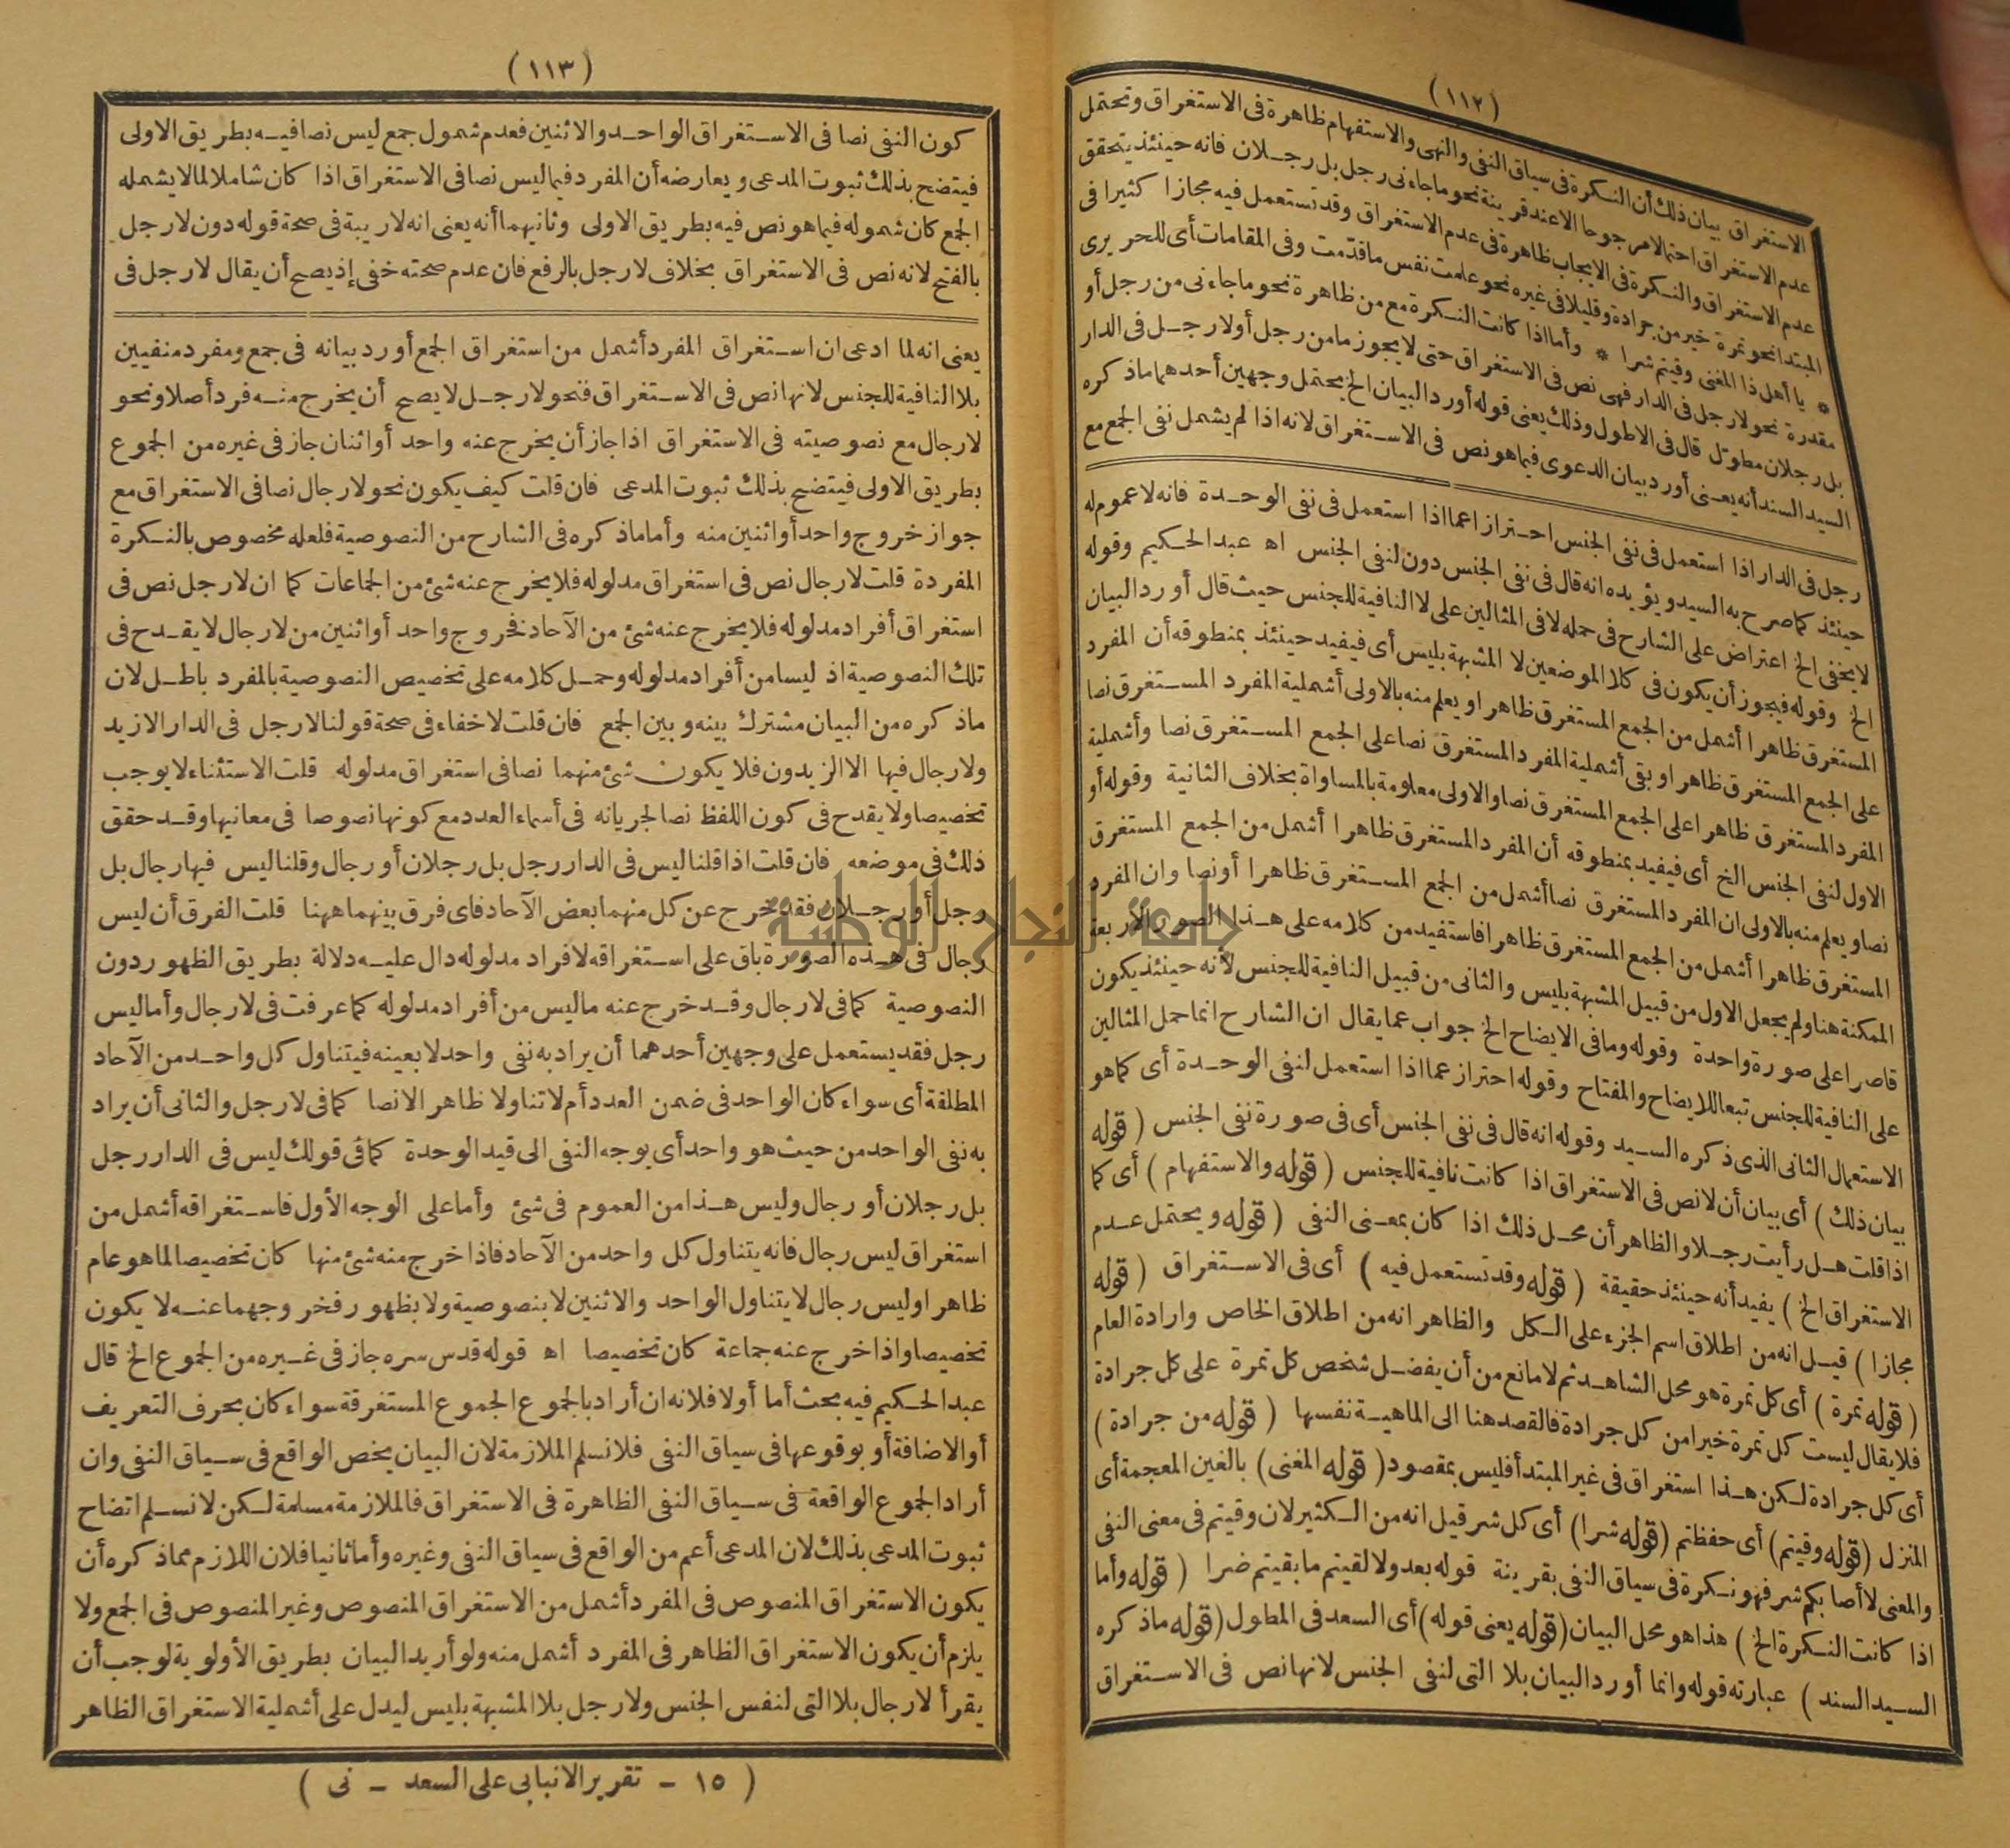 (١١٢)
الاستغراق بيان ذلك أن النكرة فى سياق النفى والنهى والاستفهام ظاهرة فى الاستغراق وتحتمل
عدم الاستغراق احتمالا مرجوحا الا عند قرينة نحو ما جاءنى رجل بل رجلان فانه حينئذ يتحقق
عدم الاستغراق والنكرة فى الايجاب ظاهرة فى عدم الاستغراق وقد تستعمل فيه مجازا كثيرا فى
المبتدا نحو تمرة خير من جرادة وقليلا فى غيره نحو علمت نفس ما قدّمت وفى المقامات أى للحريرى
* يا أهل ذا المغنى وقيتم شرا * وأما اذا كانت النكرة مع من ظاهرة نحو ما جاءنى من رجل أو
مقدرة نحو لا رجل فى الدار فهى نص فى الاستغراق حتى لا يجوز ما من رجل أو لا رجل فى الدار
بل رجلان مطوّل قال فى الاطول وذلك يعنى قوله أورد البيان الخ يحتمل وجهين أحدهما ما ذكره
السيد السند أنه يعنى أورد بيان الدعوى فيما هو نص فى الاستغراق لانه اذا لم يشمل نفى الجمع مع
رجل فى الدار اذا استعمل فى نفى الجنس احترازا عما اذا استعمل فى نفى الوحدة فانه لا عموم له
حينئذ كما صرح به السيد ويؤيده انه قال فى نفى الجنس دون لنفى الجنس اه عبد الحكيم وقوله
لا يخفى الخ اعتراض على الشارح فى حمله لا فى المثالين على لا النافية للجنس حيث قال أورد البيان
الخ وقوله فيجوز أن يكون فى كلا الموضعين لا المشبهة بليس أى فيفيد حينئذ بمنطوقه أن المفرد
المستغرق ظاهرا أشمل من الجمع المستغرق ظاهرا ويعلم منه بالاولى أشملية المفرد المستغرق نصا
على الجمع المستغرق ظاهرا وبقى أشملية المفرد المستغرق نصا على الجمع المستغرق نصا وأشملية
المفرد المستغرق ظاهرا على الجمع المستغرق نصا والاولى معلومة بالمساواة بخلاف الثانية وقوله أو
الاول لنفى الجنس الخ أى فيفيد بمنطوقه أن المفرد المستغرق ظاهرا أشمل من الجمع المستغرق
نصا ويعلم منه بالاولى ان المفرد المستغرق نصا أشمل من الجمع المستغرق ظاهرا أو نصا وان المفرد
المستغرق ظاهرا أشمل من الجمع المستغرق ظاهرا فاستفيد من كلامه على هذا الصور الأربعة
الممكنة هنا ولم يجعل الاول من قبيل المشبهة بليس والثانى من قبيل النافية للجنس لأنه حينئذ يكون
قاصرا على صورة واحدة وقوله وما فى الايضاح الخ جواب عما يقال ان الشارح انما حمل المثالين
على النافية للجنس تبعا للايضاح والمفتاح وقوله احتراز عما اذا استعمل لنفى الوحدة أى كما هو
الاستعمال الثانى الذى ذكره السيد وقوله انه قال فى نفى الجنس أى فى صورة نفى الجنس (قوله
بيان ذلك) أى بيان أن لا نص فى الاستغراق اذا كانت نافية للجنس (قوله والاستفهام) أى كما
اذا قلت هل رأيت رجلا والظاهر أن محل ذلك اذا كان بمعنى النفى (قوله ويحتمل عدم
الاستغراق الخ) يفيد أنه حينئذ حقيقة (قوله وقد تستعمل فيه) أى فى الاستغراق (قوله
مجازا) قيل انه من اطلاق اسم الجزء على الكل والظاهر انه من اطلاق الخاص وارادة العام
(قوله تمرة) أى كل تمرة هو محل الشاهد ثم لا مانع من أن يفضل شخص كل تمرة على كل جرادة
فلا يقال ليست كل تمرة خيرا من كل جرادة فالقصد هنا الى الماهية نفسها (قوله من جرادة)
أى كل جرادة لكن هذا استغراق فى غير المبتدأ فليس بمقصود (قوله المغنى) بالغين المعجمة أى
المنزل (قوله وقيتم) أى حفظتم (قوله شرا) أى كل شر قيل انه من الكثير لان وقيتم فى معنى النفى
والمعنى لا أصابكم شر فهو نكرة فى سياق النفى بقرينة قوله بعد ولا لقيتم ما بقيتم ضرا (قوله وأما
اذا كانت النكرة الخ) هذا هو محل البيان (قوله يعنى قوله) أى السعد فى المطول (قوله ما ذكره
السيد السند) عبارته قوله وانما أورد البيان بلا التى لنفى الجنس لانها نص فى الاستغراق
(١١٣)
كون النفى نصا فى الاستغراق الواحد والاثنين فعدم شمول جمع ليس نصا فيه بطريق الاولى
فيتضح بذلك ثبوت المدعى ويعارضه أن المفرد فيما ليس نصا فى الاستغراق اذا كان شاملا لما لا يشمله
الجمع كان شموله فيما هو نص فيه بطريق الاولى وثانيهما أنه يعنى انه لا ريبة فى صحة قوله دون لا رجل
بالفتح لانه نص فى الاستغراق بخلاف لا رجل بالرفع فان عدم صحته خفى إذ يصح أن يقال لا رجل فى
يعنى انه لما ادعى ان استغراق المفرد أشمل من استغراق الجمع أورد بيانه فى جمع ومفرد منفيين
بلا النافية للجنس لانها نص فى الاستغراق فنحو لا رجل لا يصح أن يخرج منه فرد أصلا ونحو
لا رجال مع نصوصيته فى الاستغراق اذا جاز أن يخرج عنه واحد أو اثنان جاز فى غيره من الجموع
بطريق الاولى فيتضح بذلك ثبوت المدعى فان قلت كيف يكون نحو لا رجال نصا فى الاستغراق مع
جواز خروج واحد أو اثنين منه وأما ما ذكره فى الشارح من النصوصية فلعله مخصوص بالنكرة
المفردة قلت لا رجال نص فى استغراق مدلوله فلا يخرج عنه شئ من الجماعات كما ان لا رجل نص فى
استغراق أفراد مدلوله فلا يخرج عنه شئ من الآحاد فخروج واحد أو اثنين من لا رجال لا يقدح فى
تلك النصوصية اذ ليسا من أفراد مدلوله وحمل كلامه على تخصيص النصوصية بالمفرد باطل لان
ما ذكره من البيان مشترك بينه وبين الجمع فان قلت لا خفاء فى صحة قولنا لا رجل فى الدار الا زيد
ولا رجال فيها الا الزيدون فلا يكون شئ منهما نصا فى استغراق مدلوله قلت الاستثناء لا يوجب
تخصيصا ولا يقدح فى كون اللفظ نصا لجريانه فى أسماء العدد مع كونها نصوصا فى معانيها وقد حقق
ذلك فى موضعه فان قلت اذا قلنا ليس فى الدار رجل بل رجلان أو رجال وقلنا ليس فيها رجال بل
رجل أو رجلان فقد خرج عن كل منهما بعض الآحاد فاى فرق بينهما ههنا قلت الفرق أن ليس
رجال فى هذه الصورة باق على استغراقه لافراد مدلوله دال عليه دلالة بطريق الظهور دون
النصوصية كما فى لا رجال وقد خرج عنه ما ليس من أفراد مدلوله كما عرفت فى لا رجال وأما ليس
رجل فقد يستعمل على وجهين أحدهما أن يراد به نفى واحد لا بعينه فيتناول كل واحد من الآحاد
المطلقة أى سواء كان الواحد فى ضمن العدد أم لا تناولا ظاهر الا نصا كما فى لا رجل والثانى أن يراد
به نفى الواحد من حيث هو واحد أى يوجه النفى الى قيد الوحدة كما فى قولك ليس فى الدار رجل
بل رجلان أو رجال وليس هذا من العموم فى شئ وأما على الوجه الأول فاستغراقه أشمل من
استغراق ليس رجال فانه يتناول كل واحد من الآحاد فاذا خرج منه شئ منها كان تخصيصا لما هو عام
ظاهرا وليس رجال لا يتناول الواحد والاثنين لا بنصوصية ولا بظهور فخروجهما عنه لا يكون
تخصيصا واذا خرج عنه جماعة كان تخصيصا اه قوله قدس سره جاز فى غيره من الجموع الخ قال
عبد الحكيم فيه بحث أما أولا فلانه ان أراد بالجموع الجموع المستغرقة سواء كان بحرف التعريف
أو الاضافة أو بوقوعها فى سياق النفى فلا نسلم الملازمة لان البيان يخص الواقع فى سياق النفى وان
أراد الجموع الواقعة فى سياق النفى الظاهرة فى الاستغراق فالملازمة مسلمة لكن لا نسلم اتضاح
ثبوت المدعى بذلك لان المدعى أعم من الواقع فى سياق النفى وغيره وأما ثانيا فلان اللازم مما ذكره أن
يكون الاستغراق المنصوص فى المفرد أشمل من الاستغراق المنصوص وغير المنصوص فى الجمع ولا
يلزم أن يكون الاستغراق الظاهر فى المفرد أشمل منه ولو أريد البيان بطريق الأولوية لوجب أن
يقرأ لا رجال بلا التى لنفس الجنس ولا رجل بلا المشبهة بليس ليدل على أشملية الاستغراق الظاهر
(١٥ - تقرير الانبابى على السعد - نى)
جامعة النجاح الوطنية